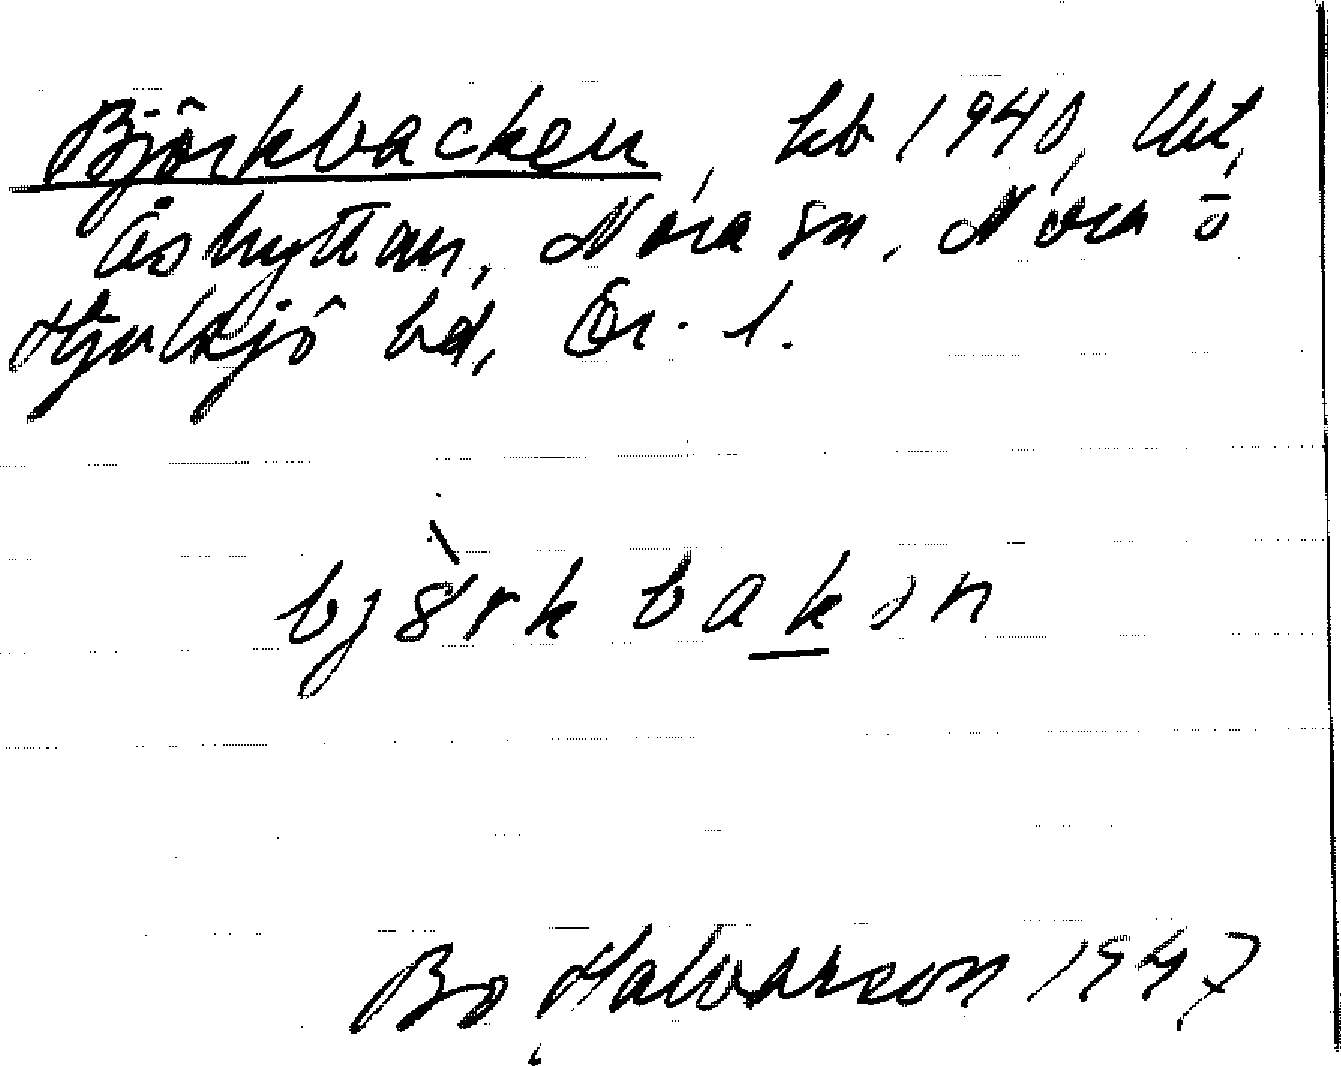 Björkbacken, kb 1940,
Åshyttan, Nora sn, Nora o
Hjulsjö bd, Ör. l.
björkbakən
Bo Halvarson 1947